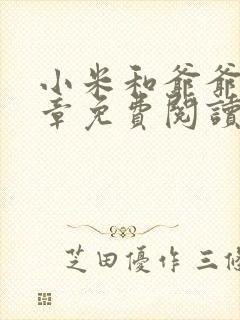 小米和爺爺
章免費閱讀
芝田優作 三條